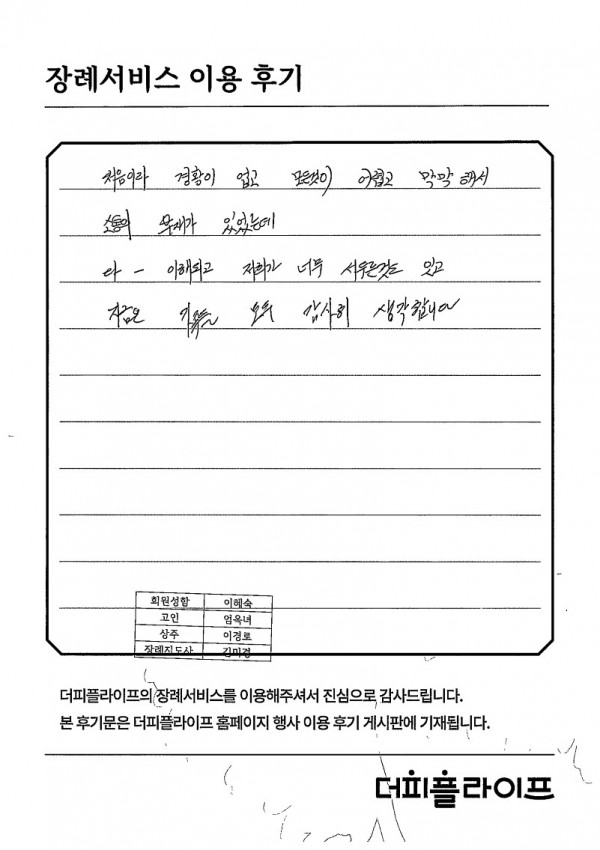 장례서비스 이용 후기
처음이라 경황이 없고 모든것이 어렵고 막막해서
소통의 문제가 있었는데
다 - 이해되고 저희가 너무 서투른것도 있고
지금은 가족들 모두 감사히 생각합니다
회원성함 이혜숙
고인 엄옥녀
상주 이경로
장례지도사 김미경
더피플라이프의 장례서비스를 이용해주셔서 진심으로 감사드립니다.
본 후기문은 더피플라이프 홈페이지 행사 이용 후기 게시판에 기재됩니다.
더피플라이프